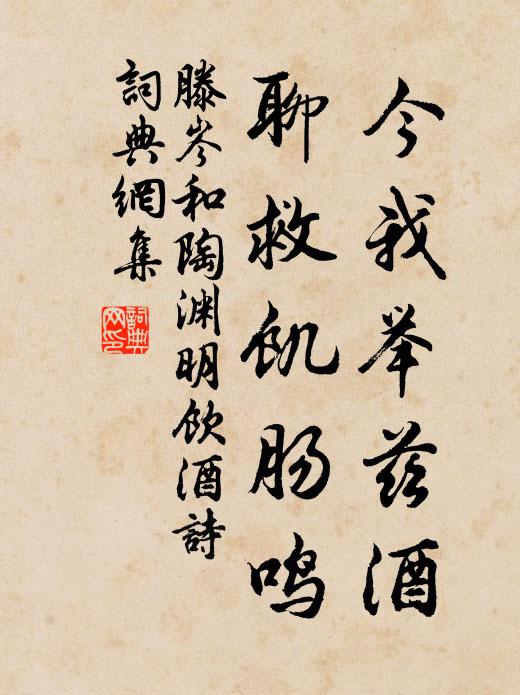 今我举兹酒
聊救饥肠鸣
滕岑和陶渊明饮酒詩
詞典網集
詞典网印